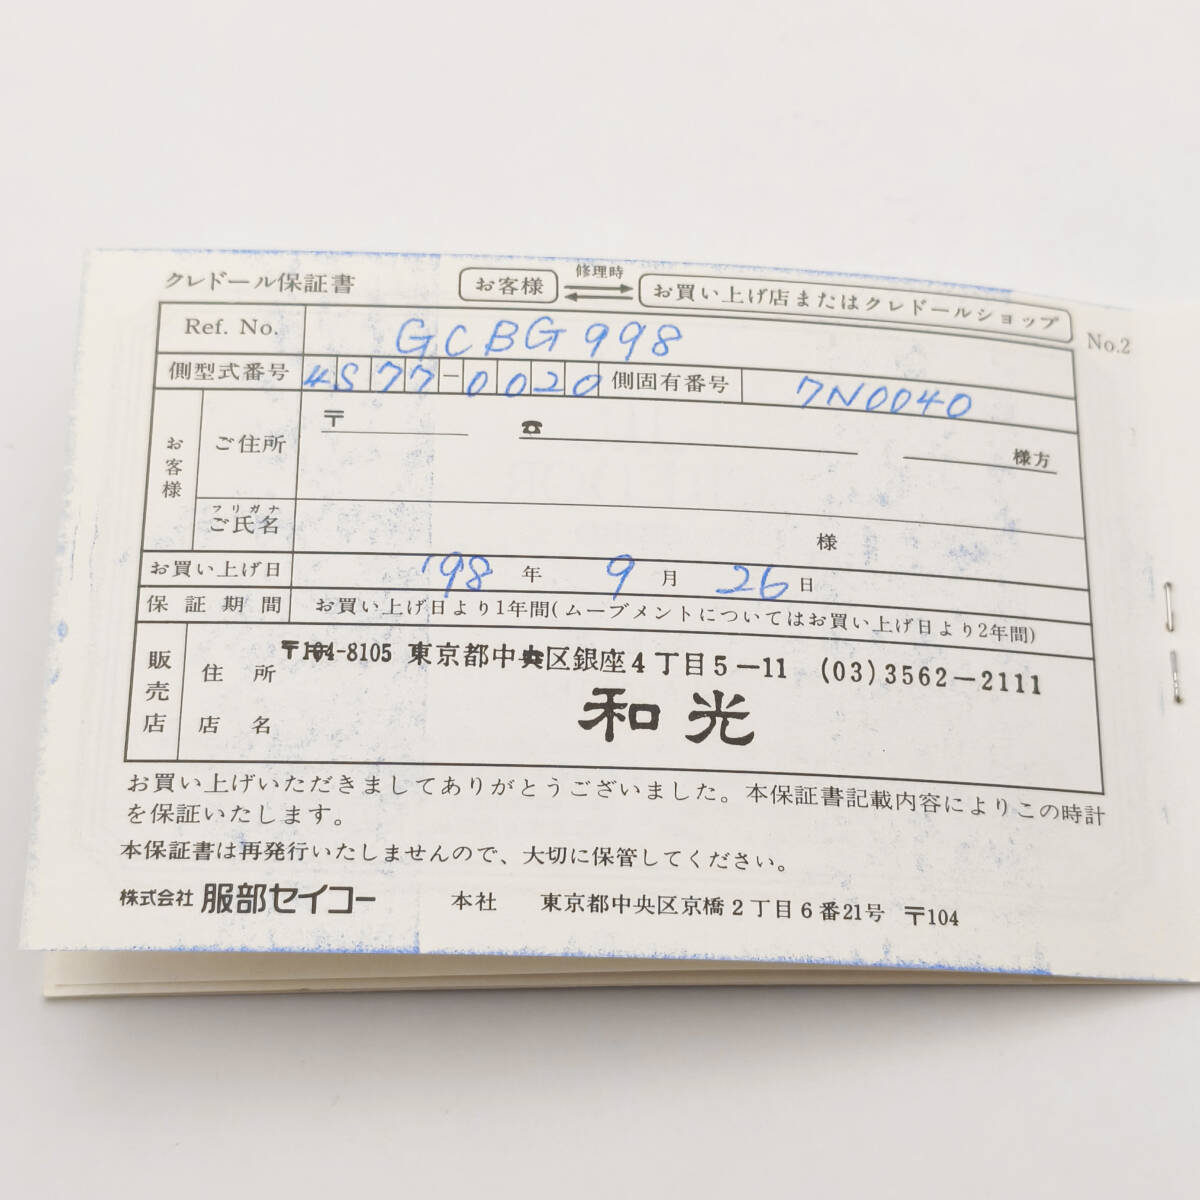 クレドール保証書 お客様 修理時 お買い上げ店またはクレドールショップ No.2
Ref. No. GCBG998
側型式番号 4S77-0020 側固有番号 7N0040
お客様 ご住所 〒 ☎ 様方
フリガナ
ご氏名 様
お買い上げ日 '98 年 9 月 26 日
保証期間 お買い上げ日より1年間(ムーブメントについてはお買い上げ日より2年間)
販売店 住所 〒104-8105 東京都中央区銀座4丁目5-11 (03)3562-2111
店名 和光
お買い上げいただきましてありがとうございました。本保証書記載内容によりこの時計
を保証いたします。
本保証書は再発行いたしませんので、大切に保管してください。
株式会社 服部セイコー 本社 東京都中央区京橋2丁目6番21号 〒104